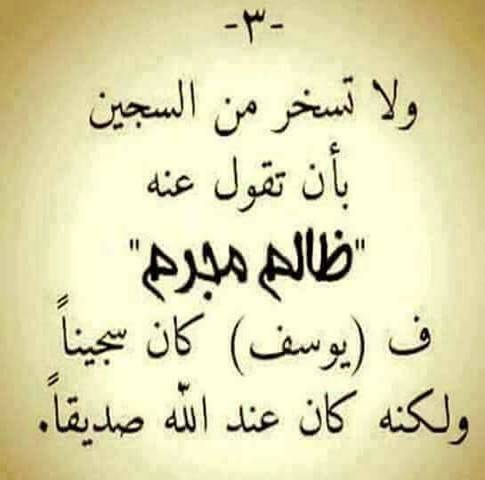 -٣-
ولا تسخر من السجين
بأن تقول عنه
"ظالم مجرم"
ف (يوسف) كان سجيناً
ولكنه كان عند الله صديقاً.